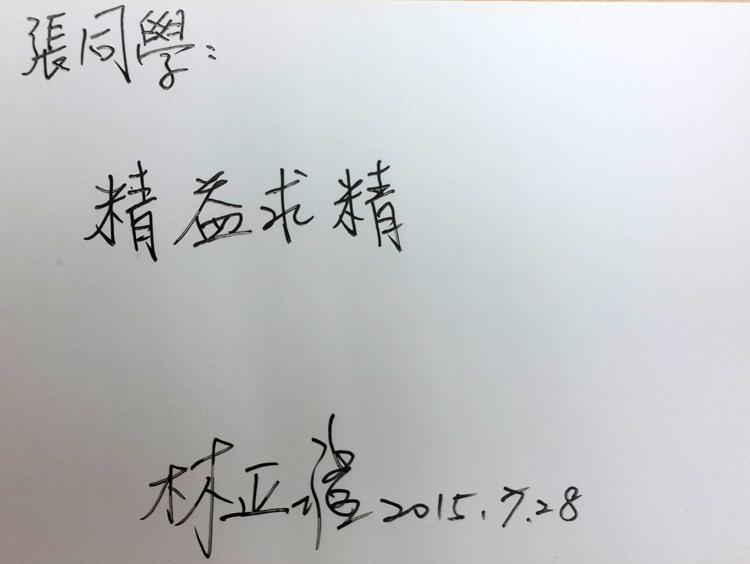 張同學：
精益求精
林正 2015.7.28